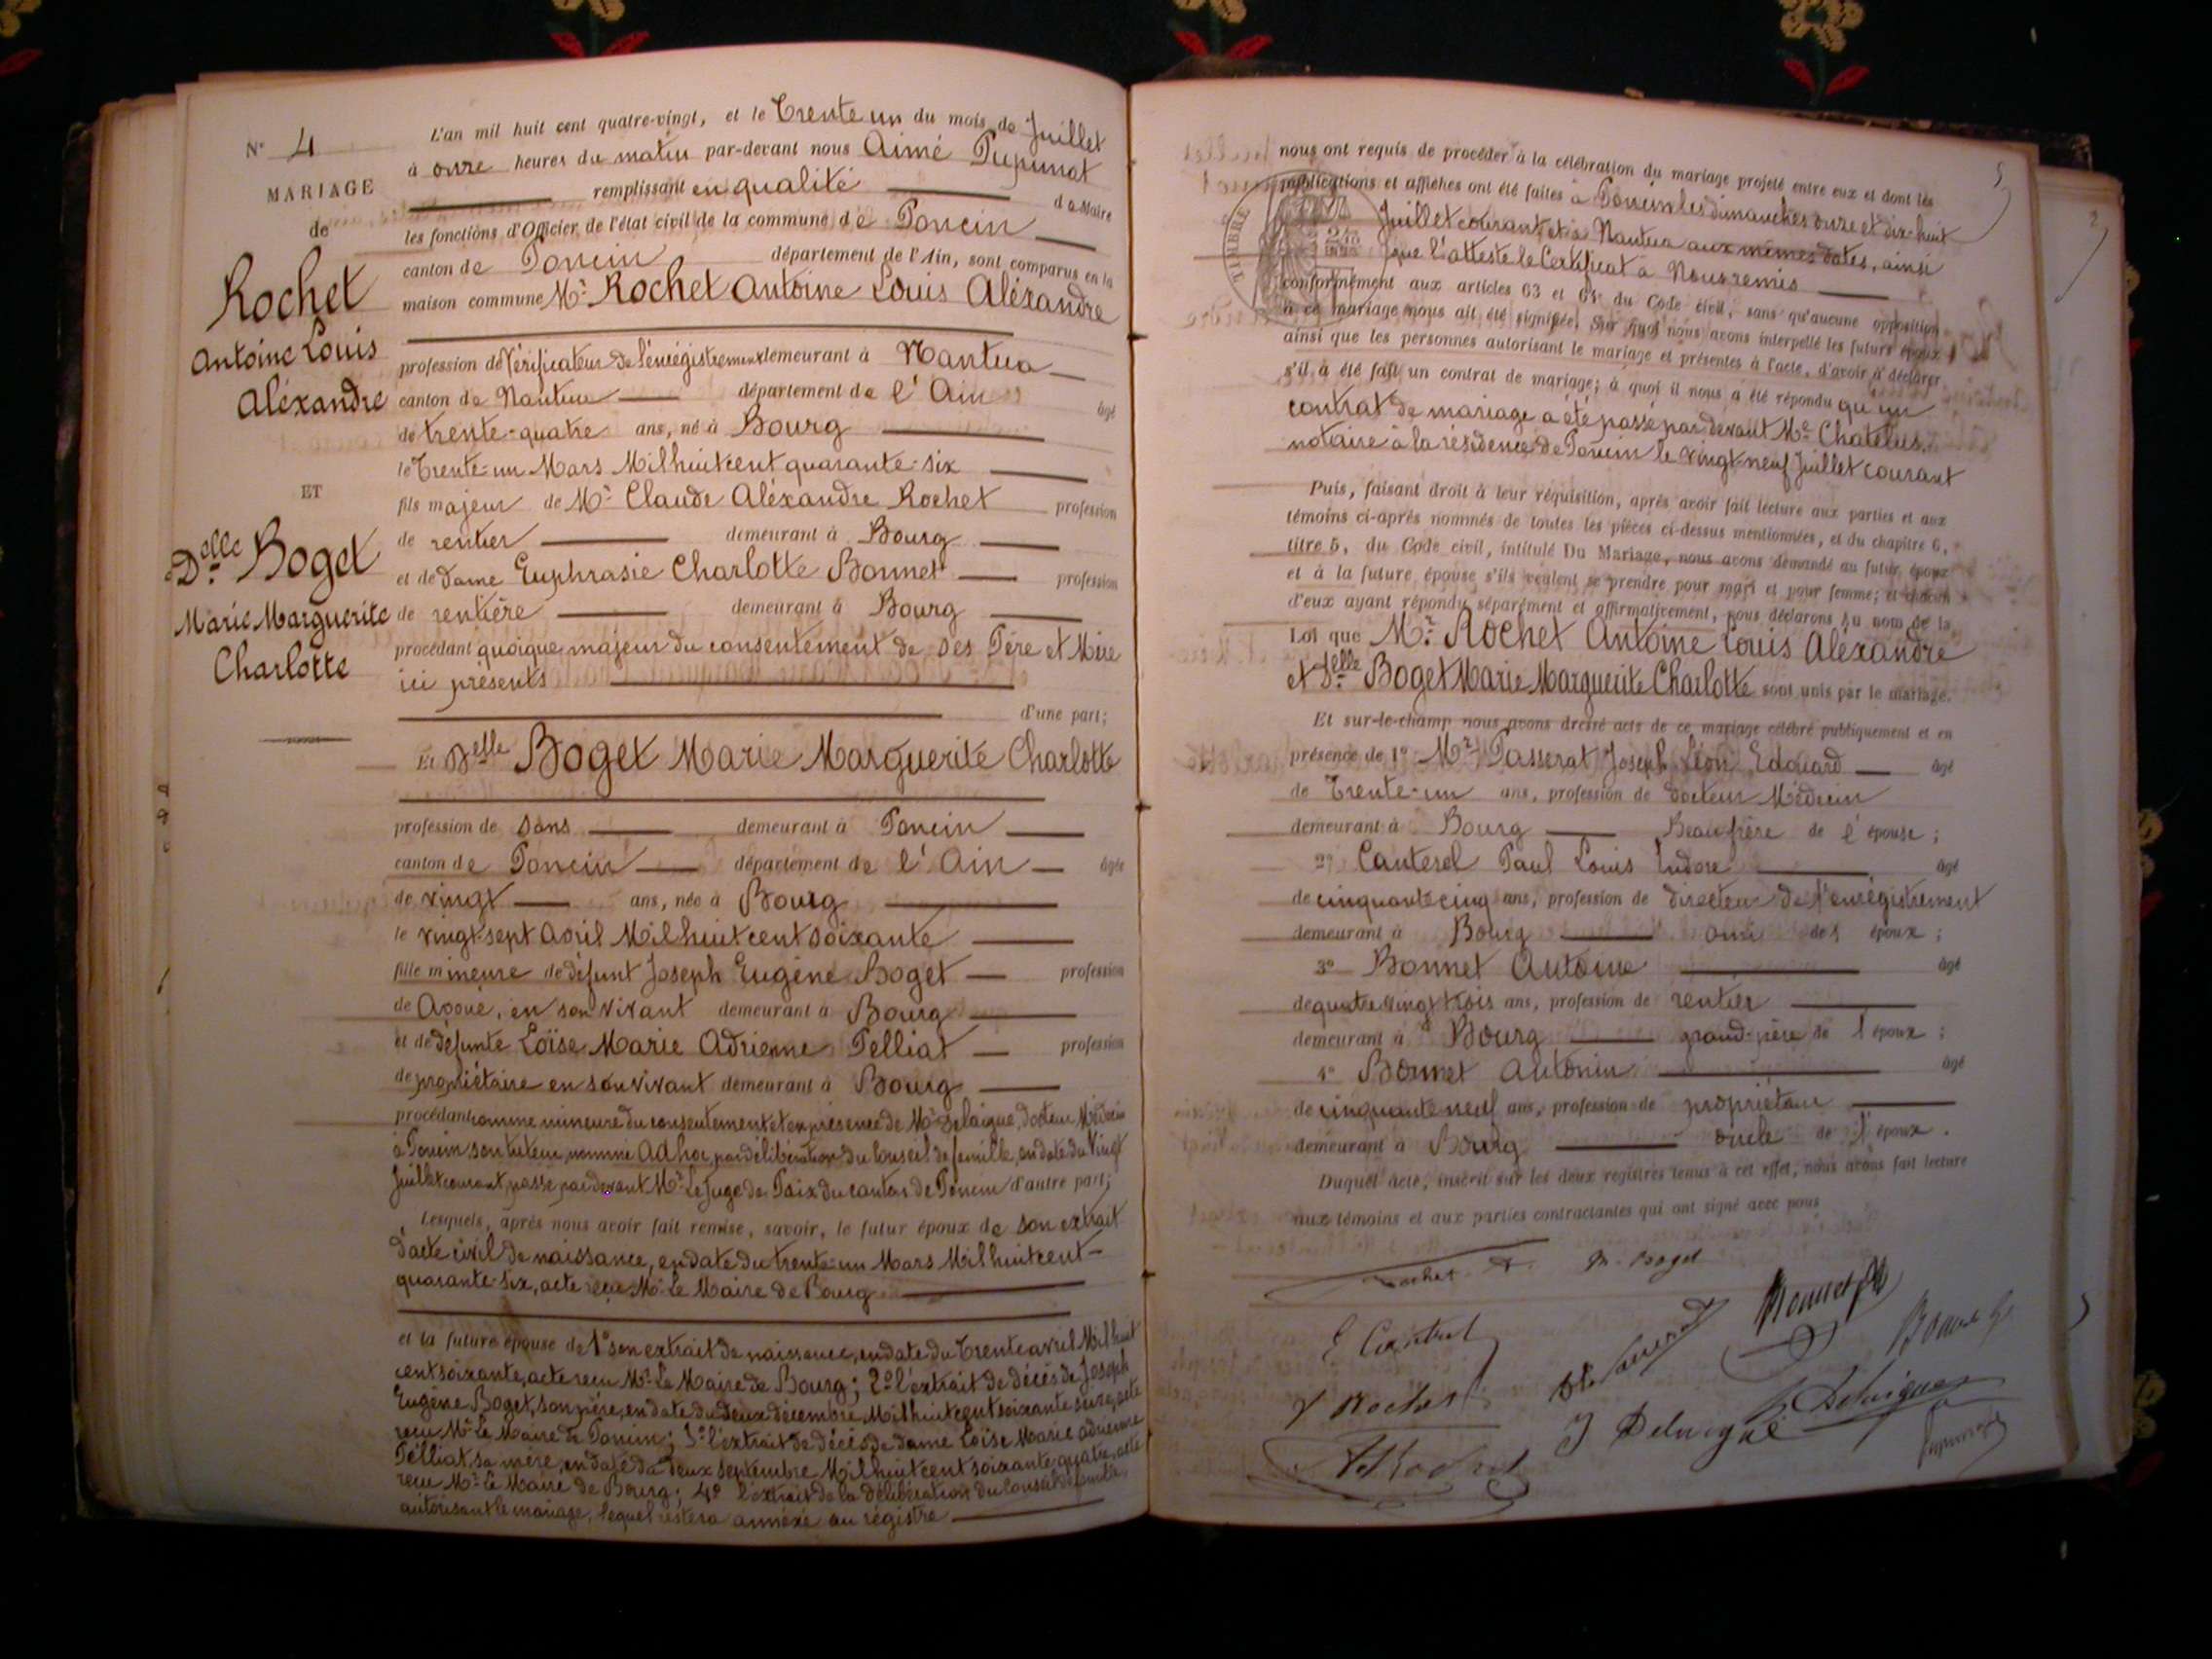 N° 4
MARIAGE
de
Rochet
Antoine Louis
Aléxandre
ET
Delle Boget
Marie Marguerite
Charlotte
L'an mil huit cent quatre-vingt, et le Trente un du mois de Juillet
à onze heures du matin par-devant nous Aimé Pupunat
remplissant en qualité de Maire
les fonctions d'Officier de l'état civil de la commune de Poncin
canton de Poncin département de l'Ain, sont comparus en la
maison commune Mr Rochet Antoine Louis Aléxandre
profession de Vérificateur de l'enrégistrement demeurant à Nantua
canton de Nantua département de l'Ain âgé
de trente-quatre ans, né à Bourg
le Trente-un Mars Milhuitcent quarante-six
fils majeur de Mr Claude Aléxandre Rochet profession
de rentier demeurant à Bourg
et de dame Euphrasie Charlotte Bonnet profession
de rentière demeurant à Bourg
procédant quoique majeur du consentement de ses Père et Mère
ici présents
d'une part;
Et Delle Boget Marie Marguerite Charlotte
profession de sans demeurant à Poncin
canton de Poncin département de l'Ain âgée
de vingt ans, née à Bourg
le vingt-sept avril Milhuitcent soixante
fille mineure de défunt Joseph Eugène Boget profession
de Avoué, en son vivant demeurant à Bourg
et de défunte Loïse Marie Adrienne Pelliat profession
de propriétaire en son vivant demeurant à Bourg
procédant comme mineure du consentement et en présence de Mr Delaigue, docteur Médecin
à Poncin son tuteur, nommé Ad hoc, par délibération du Conseil de famille, en date du Vingt
Juillet courant, passé par devant Mr Le Juge de Paix du canton de Poncin d'autre part;
Lesquels, après nous avoir fait remise, savoir, le futur époux de son extrait
d'acte civil de naissance, en date du trente-un Mars Milhuitcent-
quarante-six, acte reçu Mr Le Maire de Bourg
et la future épouse de 1° son extrait de naissance, en date du Trente avril Milhuit
cent soixante, acte reçu Mr Le Maire de Bourg; 2° l'extrait de décès de Joseph
Eugène Boget, son père, en date du deux décembre Milhuitcent soixante seize, acte
reçu Mr Le Maire de Poncin; 3° l'extrait de décès de dame Loïse Marie Adrienne
Pelliat, sa mère, en date du deux septembre Milhuitcent soixante quatre, acte
reçu Mr Le Maire de Bourg; 4° l'extrait de la délibération du Conseil de famille
autorisant le mariage, lequel restera annexé au régistre
5
nous ont requis de procéder à la célébration du mariage projeté entre eux et dont les
publications et affiches ont été faites à Poncin les dimanches onze et dix-huit
Juillet courant et à Nantua aux mêmes dates, ainsi
que l'atteste le Certificat à Nous remis
TIMBRE
conformément aux articles 63 et 64 du Code civil, sans qu'aucune opposition
à ce mariage nous ait été signifiée. Sur quoi nous avons interpellé les futurs époux
ainsi que les personnes autorisant le mariage et présentes à l'acte, d'avoir à déclarer
s'il a été fait un contrat de mariage; à quoi il nous a été répondu qu'un
contrat de mariage a été passé par devant Me Chatelus,
notaire à la résidence de Poncin le vingt-neuf Juillet courant
Puis, faisant droit à leur réquisition, après avoir fait lecture aux parties et aux
témoins ci-après nommés de toutes les pièces ci-dessus mentionnées, et du chapitre 6,
titre 5, du Code civil, intitulé Du Mariage, nous avons demandé au futur époux
et à la future épouse s'ils veulent se prendre pour mari et pour femme; et chacun
d'eux ayant répondu séparément et affirmativement, nous déclarons au nom de la
Loi que Mr Rochet Antoine Louis Aléxandre
et Delle Boget Marie Marguerite Charlotte sont unis par le mariage.
Et sur-le-champ nous avons dressé acte de ce mariage célébré publiquement et en
présence de 1° Mr Passerat Joseph Léon Edouard âgé
de Trente-un ans, profession de docteur Médecin
demeurant à Bourg Beau frère de l'épouse;
2° Canterel Paul Louis Isidore âgé
de cinquante cinq ans, profession de directeur de l'enrégistrement
demeurant à Bourg ami des époux;
3° Bonnet Antoine âgé
de quatre vingt trois ans, profession de rentier
demeurant à Bourg grand-père de l'époux;
4° Bonnet Antonin âgé
de cinquante neuf ans, profession de propriétaire
demeurant à Bourg oncle de l'époux.
Duquel acte, inscrit sur les deux registres tenus à cet effet, nous avons fait lecture
aux témoins et aux parties contractantes qui ont signé avec nous
Rochet A. M. Boget
Rochet
J Delaigue Delaigue
A Rochet